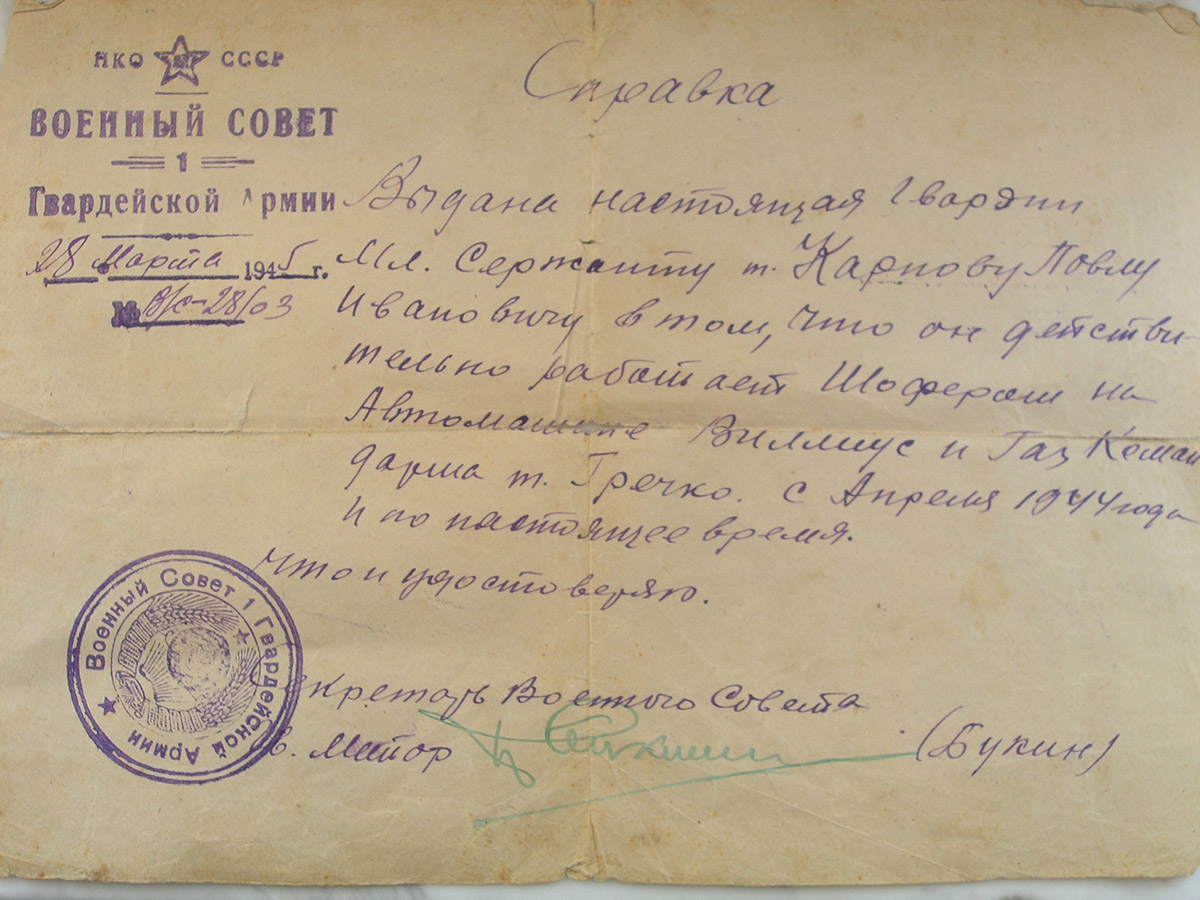 НКО СССР
ВОЕННЫЙ СОВЕТ
1
Гвардейской Армии
28 Марта 1945 г.
№ В/С-28/03
Справка
Выдана настоящая Гвардии
Мл. Сержанту т. Карпову Повлу
Ивановичу в том, что он действи-
тельно работает Шофером на
Автомашине Виллиус и Газ Коман
дарма т. Гречко. с Апреля 1944 года
и по настоящее время.
Что и удостоверяю.
Секретарь Военного Совета
Гв. Майор (Букин)
Военный Совет 1 Гвардейской Армии